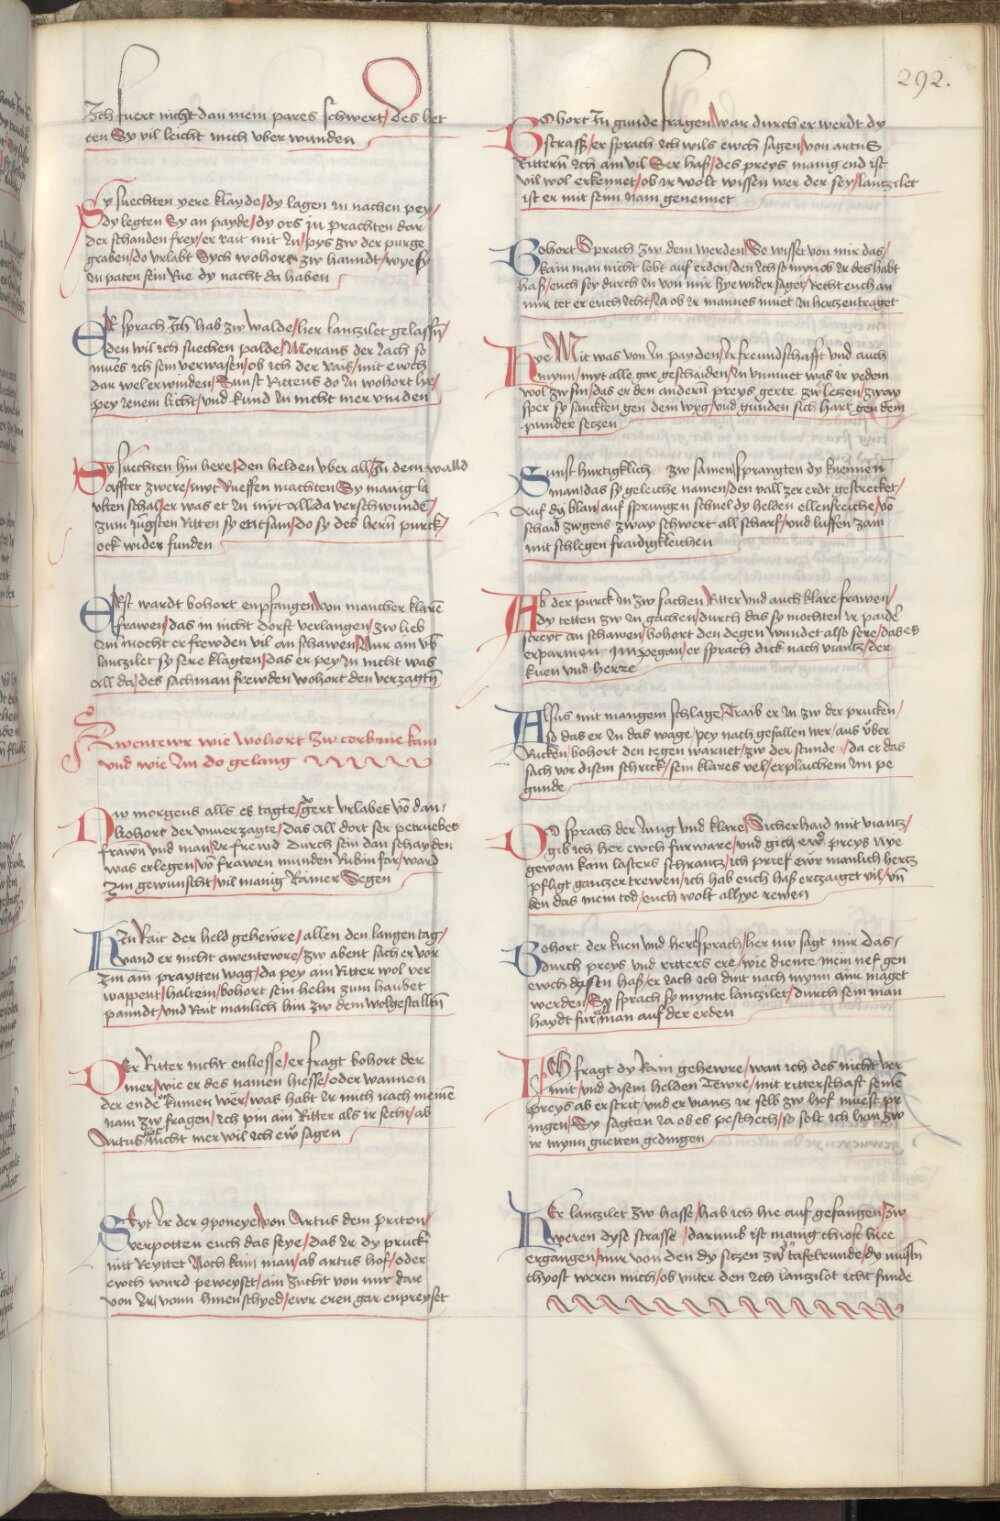 292.
Ich fuert nicht dan mein pares schwert / des het
ten Sy vil leicht mich vber wunden
Sy suechten yere klayde / dy lagen in nachen pey /
dy legten Sy an payde / dy ors in prachten dar
der schanden frey / er rait mit in / pys zw der purge
graben / do vrlabt Sych wohort zw hanndt / wye sy
in paten sein Rue dy nacht da haben
ER sprach Ich hab zw walde / her lantzilet gelassn /
den wil ich suechen palde / Morans der sach so
mues ich sein verwasen / ob ich der Rais / mit ewch
dar wel erwinden / Sunst Rittens do in wohort lye /
pey ienem licht / vnd kund in nicht mer vinden
Sy suechten hin here / den helden vber all / In dem walld
affter zwere / myt Rueffen machten Sy manig la
uten schal / er was et in myt all da verschwunde /
zum Jungsten Ritten sy entsam / do sy des hern purck /
ock wider funden
ERst wardt bohort enpfangen / von mancher klare
frawen / das in nicht dorft verlangen / zw lieb
am mocht er frewden vil an schawen / Nur am vb
lantzilet so sere klagten / das er pey in nicht was
all da / des sach man frewden wohort den verzagtn
Awentewr wie wohort zw corbine kam
vnd wie im do gelang
Dw morgens alls es tagte / do gert vrlabes vo dan /
bohort der vnuerzagte / das all dort ser petruebet
frawn vnd man / ir frewd durch sein dan schayden
was erlegen / vo frawen munden Rubin far / ward
Im gewunscht / vil manig Rainer Segen
HIn Rait der held gehewre / allen den langen tag /
vand er nicht awentewre / zw abent sach er vor
Im ain praytten wag / da pey ain Ritter wol ver
wappent / haltein / bohort sein helm zum haubet
panndt / vnd Rait manlich hin zw dem wolgestalltn
Der Ritter nicht enliesse / er fragt bohort der
mer / wie er des namen hiesse / oder wannen
der ende er kumen wer / was habt ir mich nach meine
nam zw fragen / ich pin ain Ritter als ir secht / ab
Artus hof / nicht mer wil ich ew sagen
Seyt ir der yponeye / von Artus dem priton /
verpotten euch das seye / das ir dy pruck
nit Reyttet Noch kain man / ab artus hof / oder
ewch wurd peweyset / ain zucht von mir dar
von ir / vonn hinen schyed / ewr eren gar enpreyset
Bohort In gunde fragen / war durch er werdt dy
strasse / er sprach ich wils ewch sagen / von artus
Rittern ich ain vil Ser hass / des preys manig end ist
vil wol erkennet / ob ir wolt wissen wer der sey / lantzilet
ist er mit seim nam genennet
Bohort Sprach zw dem werden / So wisset von mir das /
kain man nicht lebt auf erden / den ich so mynn ob ir des habt
hass / euch sey durch in von mir hye wider saget / secht euch an
mir tet er euch icht / ia ob ir mannes muet in hertzen traget
Hye Mit was von in payden / ir freundschafft vnd auch
mynn / myt alle gar geschaiden / in vnmuet was ir yedem
wol zw sin / das er den andern preys gerte zw letzen / zway
sper sy sanckten gen dem wyg / vnd gunden sich hart gen dem
punder setzen
Sunst hurtigklich zw samen / sprangten dy kuennen
man / das sy geleiche namen / den vall zer erdt gestrecket /
Auf dy blan / auf sprungen schnel dy helden ellensreiche / vo
schaid zugens zway schwert all scharf / vnd luffen zam
mit schlegen fraidigkleichen
Ab der purck in zw sachen / Ritter vnd auch klare frawen /
dy tetten zw in gachen / durch das sy mochten ir paider
streyt an schawen / bohort den degen wundet also sere / das es
erparmen im pegan / er sprach dick nach viantz / der
kuen vnd herre
Alsus mit mangem schlage / Traib er in zw der prucken /
so das er in das wage / pey nach gefallen wer / aus vber
Rucken / bohort den tegen warnet / zw der stunde / da er das
sach vor disem schrick / sein klares vel / erplaichem im pe
gunde
Do sprach der Jung vnd klare / Sicherhaid mit viantz /
gib ich her ewch fur ware / vnd gich ew preys nye
gewan kain lasters schrantz / ich prief ewr manlich hertz
pfligt gantzer trewen / ich hab euch hass ertzaiget vil / vn
den das mein tod / euch wolt allhye rewen
Bohort der kuen vnd here / sprach / her nw sagt mir das /
durch preys vnd ritters ere / wie diente mein nef gen
ewch dissen hass / er iach ich dint nach mynn ainr maget
werden / Sy sprach sy mynte lantzilet / durch sein man
haydt fur all man auf der erden
ICh fragt dy Rain gehewre / wan ich des nicht ver
mit / vnd disem helden Tewre / mit ritterschaft seine
preys ab erstrit / vnd er viantz ir selb zw hof muest pr
ingen / Sy sagten ia ob es peschech / so solt ich han zw
ir mynn guetten gedingen
HEr lantzilet zw hasse / hab ich hie auf gefangen / zw
weren dyse strasse / darumb ist manig thiost hiee
ergangen / nur von den dy sitzen zw der tafelrunde / dy muestn
thyost weren mich / ob vnter den ich lantzilet icht funde